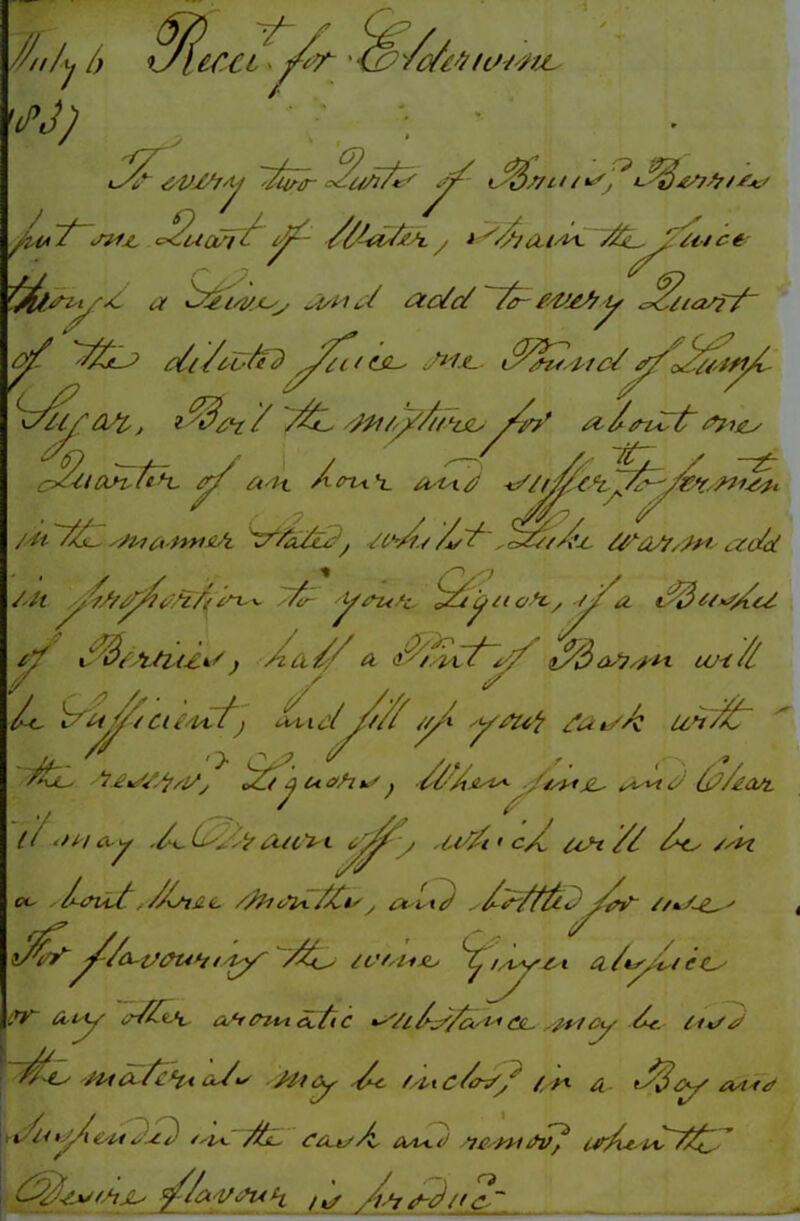 July 6 Rect for Elderwine
To every two Quarts of Bruis'd Berries
put one Quart of Water, strain the Juice
through a Seive, and add to every Quart
of the diluted Juice one Pound of Lump
Sugar, Boil the mixture for about one
Quarter of an hour and suffer it to ferment
in the manner stated, whilst Quite warm add
in proportion to your Liquor, if a Bushel
of Berries, half a Pint of Barm will
be Sufficient, and fill up your cask with
the reserv'd Liquors, When fine and Clear
it may be Drawn off, which will be in
about three months, and bottled for use
For flavouring the wine Ginger alspice
or any other aromatic substance may be used
the materials may be inclos'd in a Bag and
suspended in the cask and remov'd when the
Desire flavour is produc'd